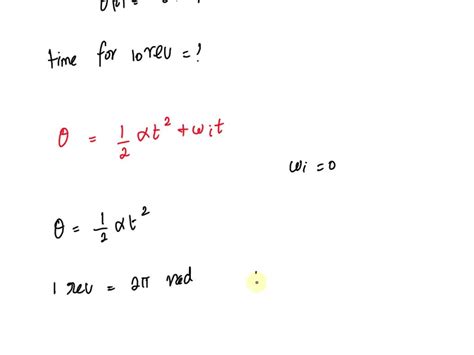 time for 10 rev = ?
θ = 1/2 αt² + ωit
ωi = 0
θ = 1/2 αt²
1 rev = 2π rad